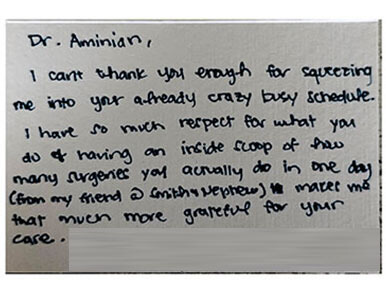 Dr. Aminian,
I can't thank you enough for squeezing
me into your already crazy busy schedule.
I have so much respect for what you
do & having an inside scoop of how
many surgeries you actually do in one day
(from my friend @ Smith & Nephew) makes me
that much more grateful for your
care.